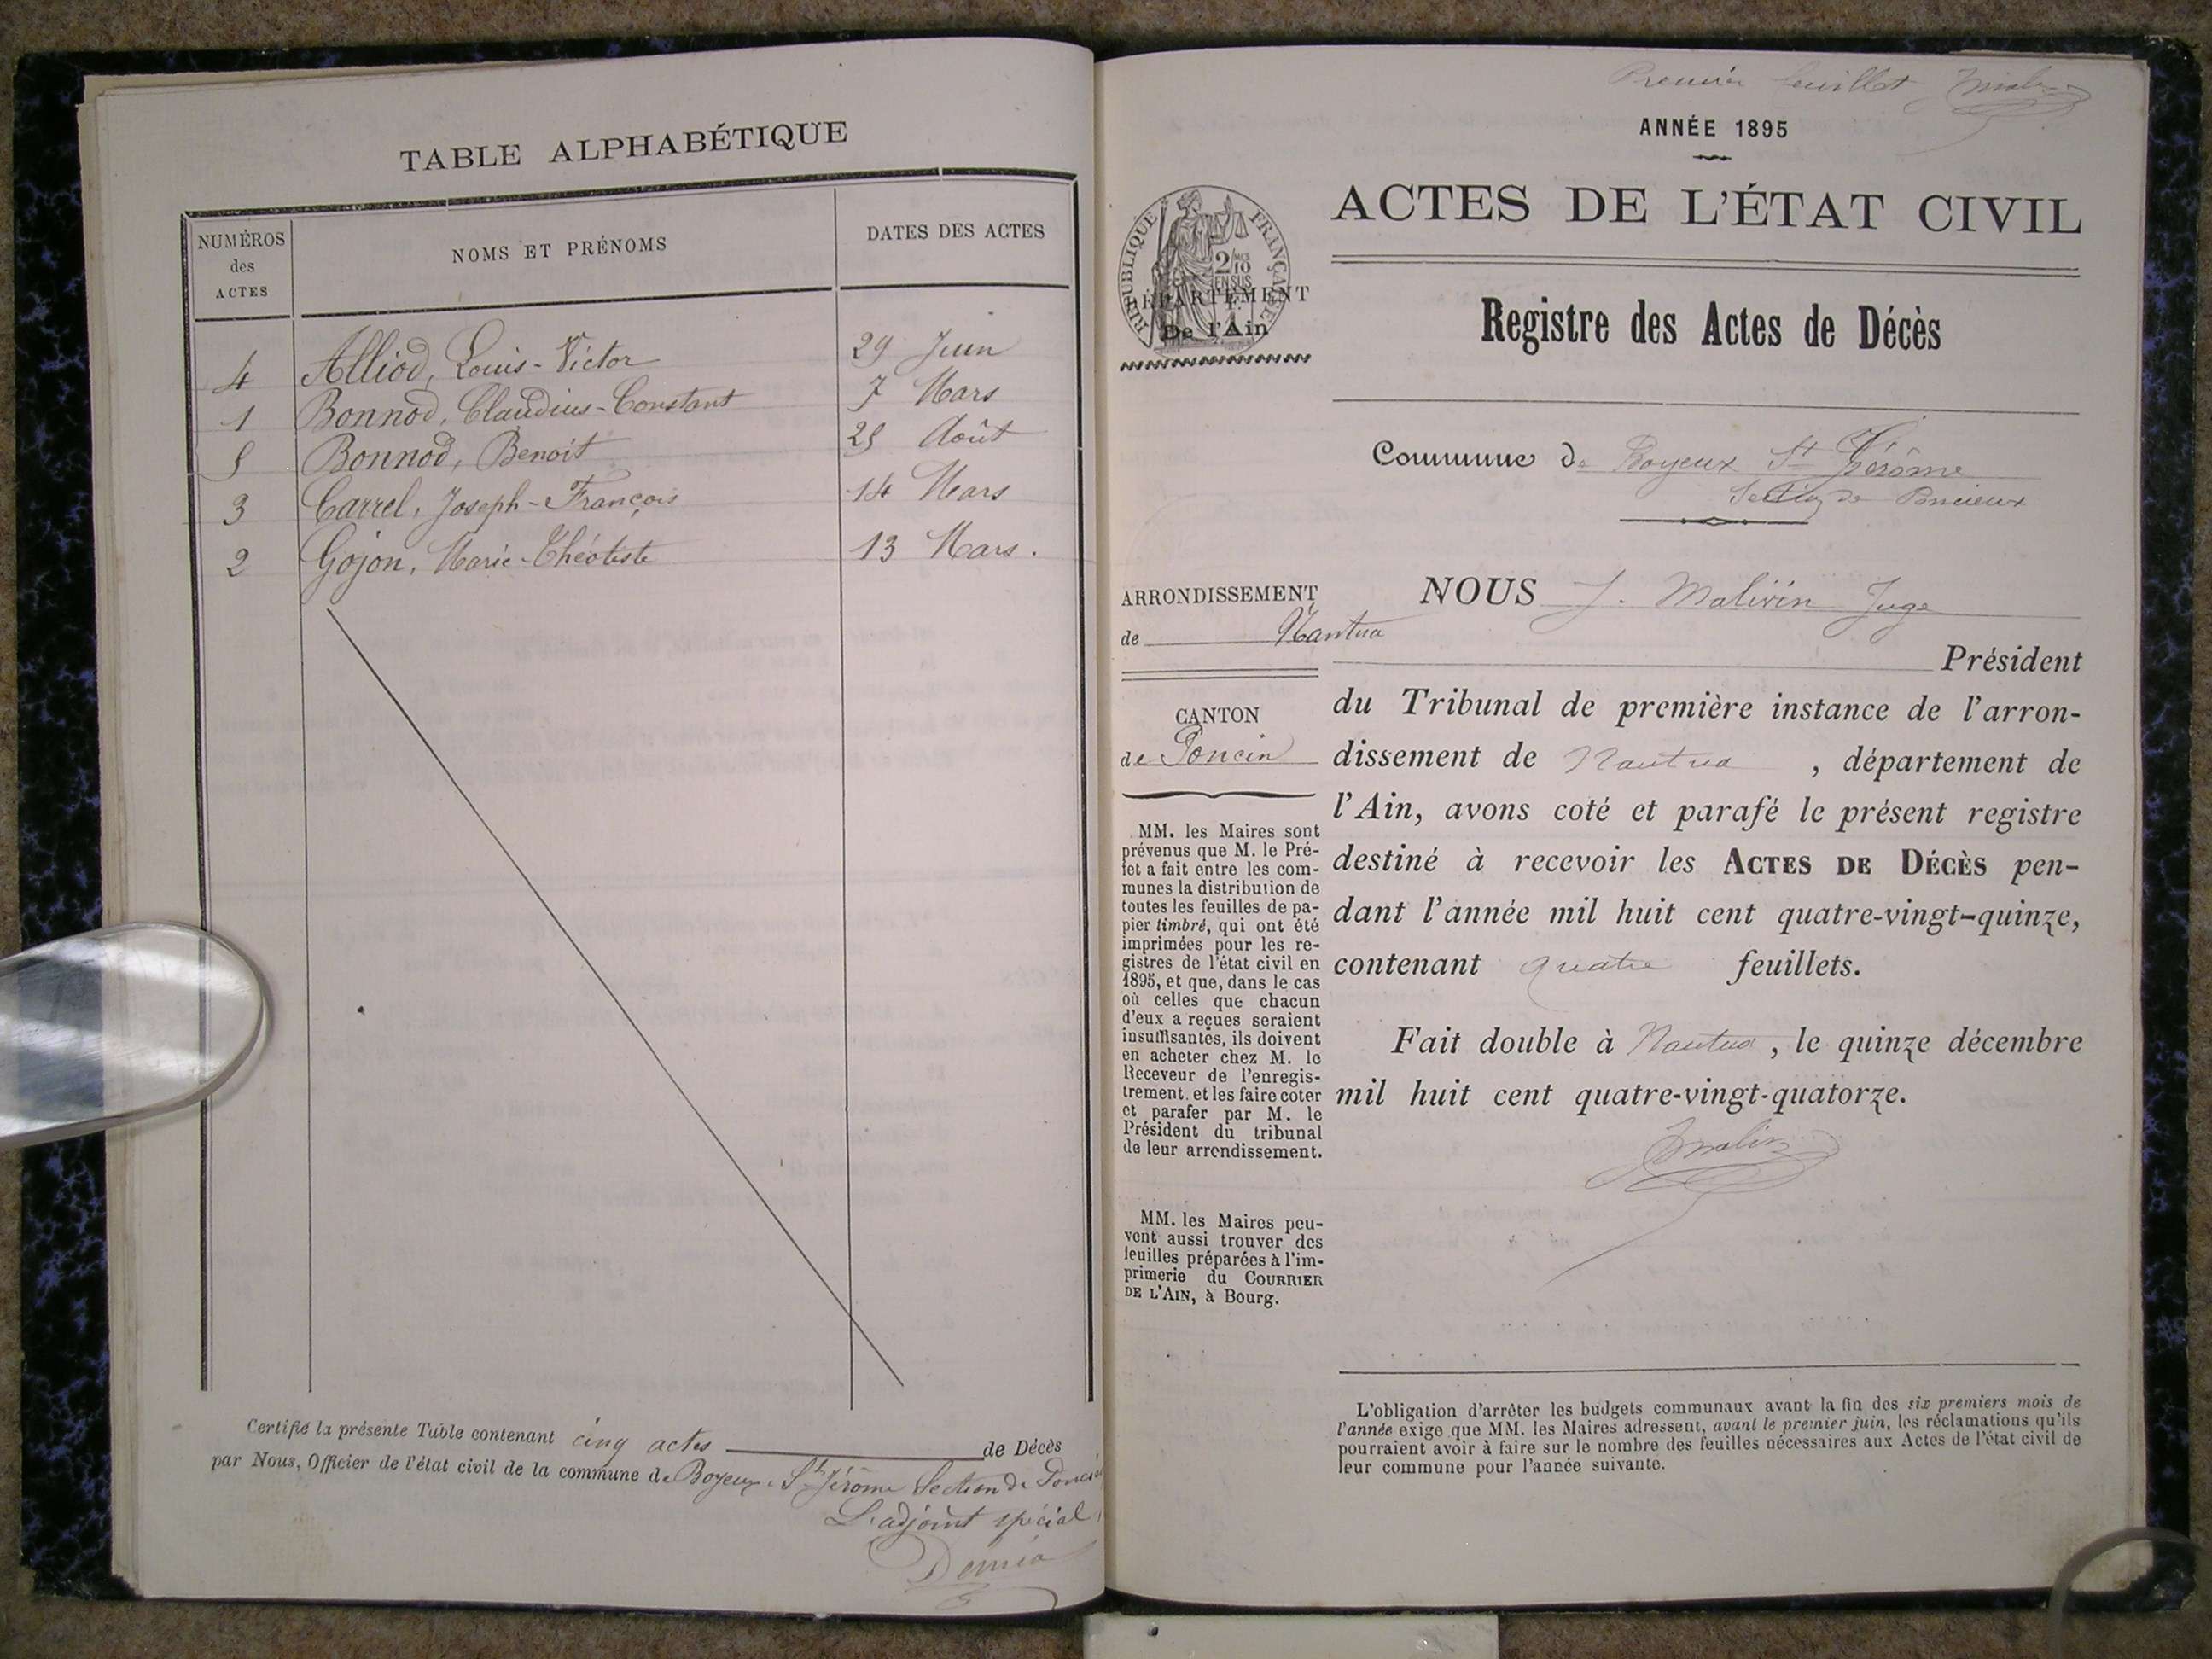 TABLE ALPHABÉTIQUE
NUMÉROS
des
ACTES
NOMS ET PRÉNOMS
DATES DES ACTES
4 Alliod, Louis-Victor 29 Juin
1 Bonnod, Claudius-Constant 7 Mars
5 Bonnod, Benoit 25 Août
3 Carrel, Joseph-François 14 Mars
2 Gojon, Marie-Théotiste 13 Mars.
Certifié la présente Table contenant cinq actes de Décès
par Nous, Officier de l'état civil de la commune de Boyeux-St Jérôme Section de
L'adjoint spécial
Démia
Premier feuillet
ANNÉE 1895
ACTES DE L'ÉTAT CIVIL
RÉPUBLIQUE FRANÇAISE
2/10 MES
EN SUS
DÉPARTEMENT
De l'Ain
Registre des Actes de Décès
Commune de Boyeux St Jérôme
Section de Poncieux
ARRONDISSEMENT
de Nantua
CANTON
de Poncin
MM. les Maires sont
prévenus que M. le Pré-
fet a fait entre les com-
munes la distribution de
toutes les feuilles de pa-
pier timbré, qui ont été
imprimées pour les re-
gistres de l'état civil en
1895, et que, dans le cas
où celles que chacun
d'eux a reçues seraient
insuffisantes, ils doivent
en acheter chez M. le
Receveur de l'enregis-
trement, et les faire coter
et parafer par M. le
Président du tribunal
de leur arrondissement.
MM. les Maires peu-
vent aussi trouver des
feuilles préparées à l'im-
primerie du COURRIER
DE L'AIN, à Bourg.
NOUS J. Malivin Juge
Président
du Tribunal de première instance de l'arron-
dissement de Nantua, département de
l'Ain, avons coté et parafé le présent registre
destiné à recevoir les ACTES DE DÉCÈS pen-
dant l'année mil huit cent quatre-vingt-quinze,
contenant quatre feuillets.
Fait double à Nantua, le quinze décembre
mil huit cent quatre-vingt-quatorze.
L'obligation d'arrêter les budgets communaux avant la fin des six premiers mois de
l'année exige que MM. les Maires adressent, avant le premier juin, les réclamations qu'ils
pourraient avoir à faire sur le nombre des feuilles nécessaires aux Actes de l'état civil de
leur commune pour l'année suivante.